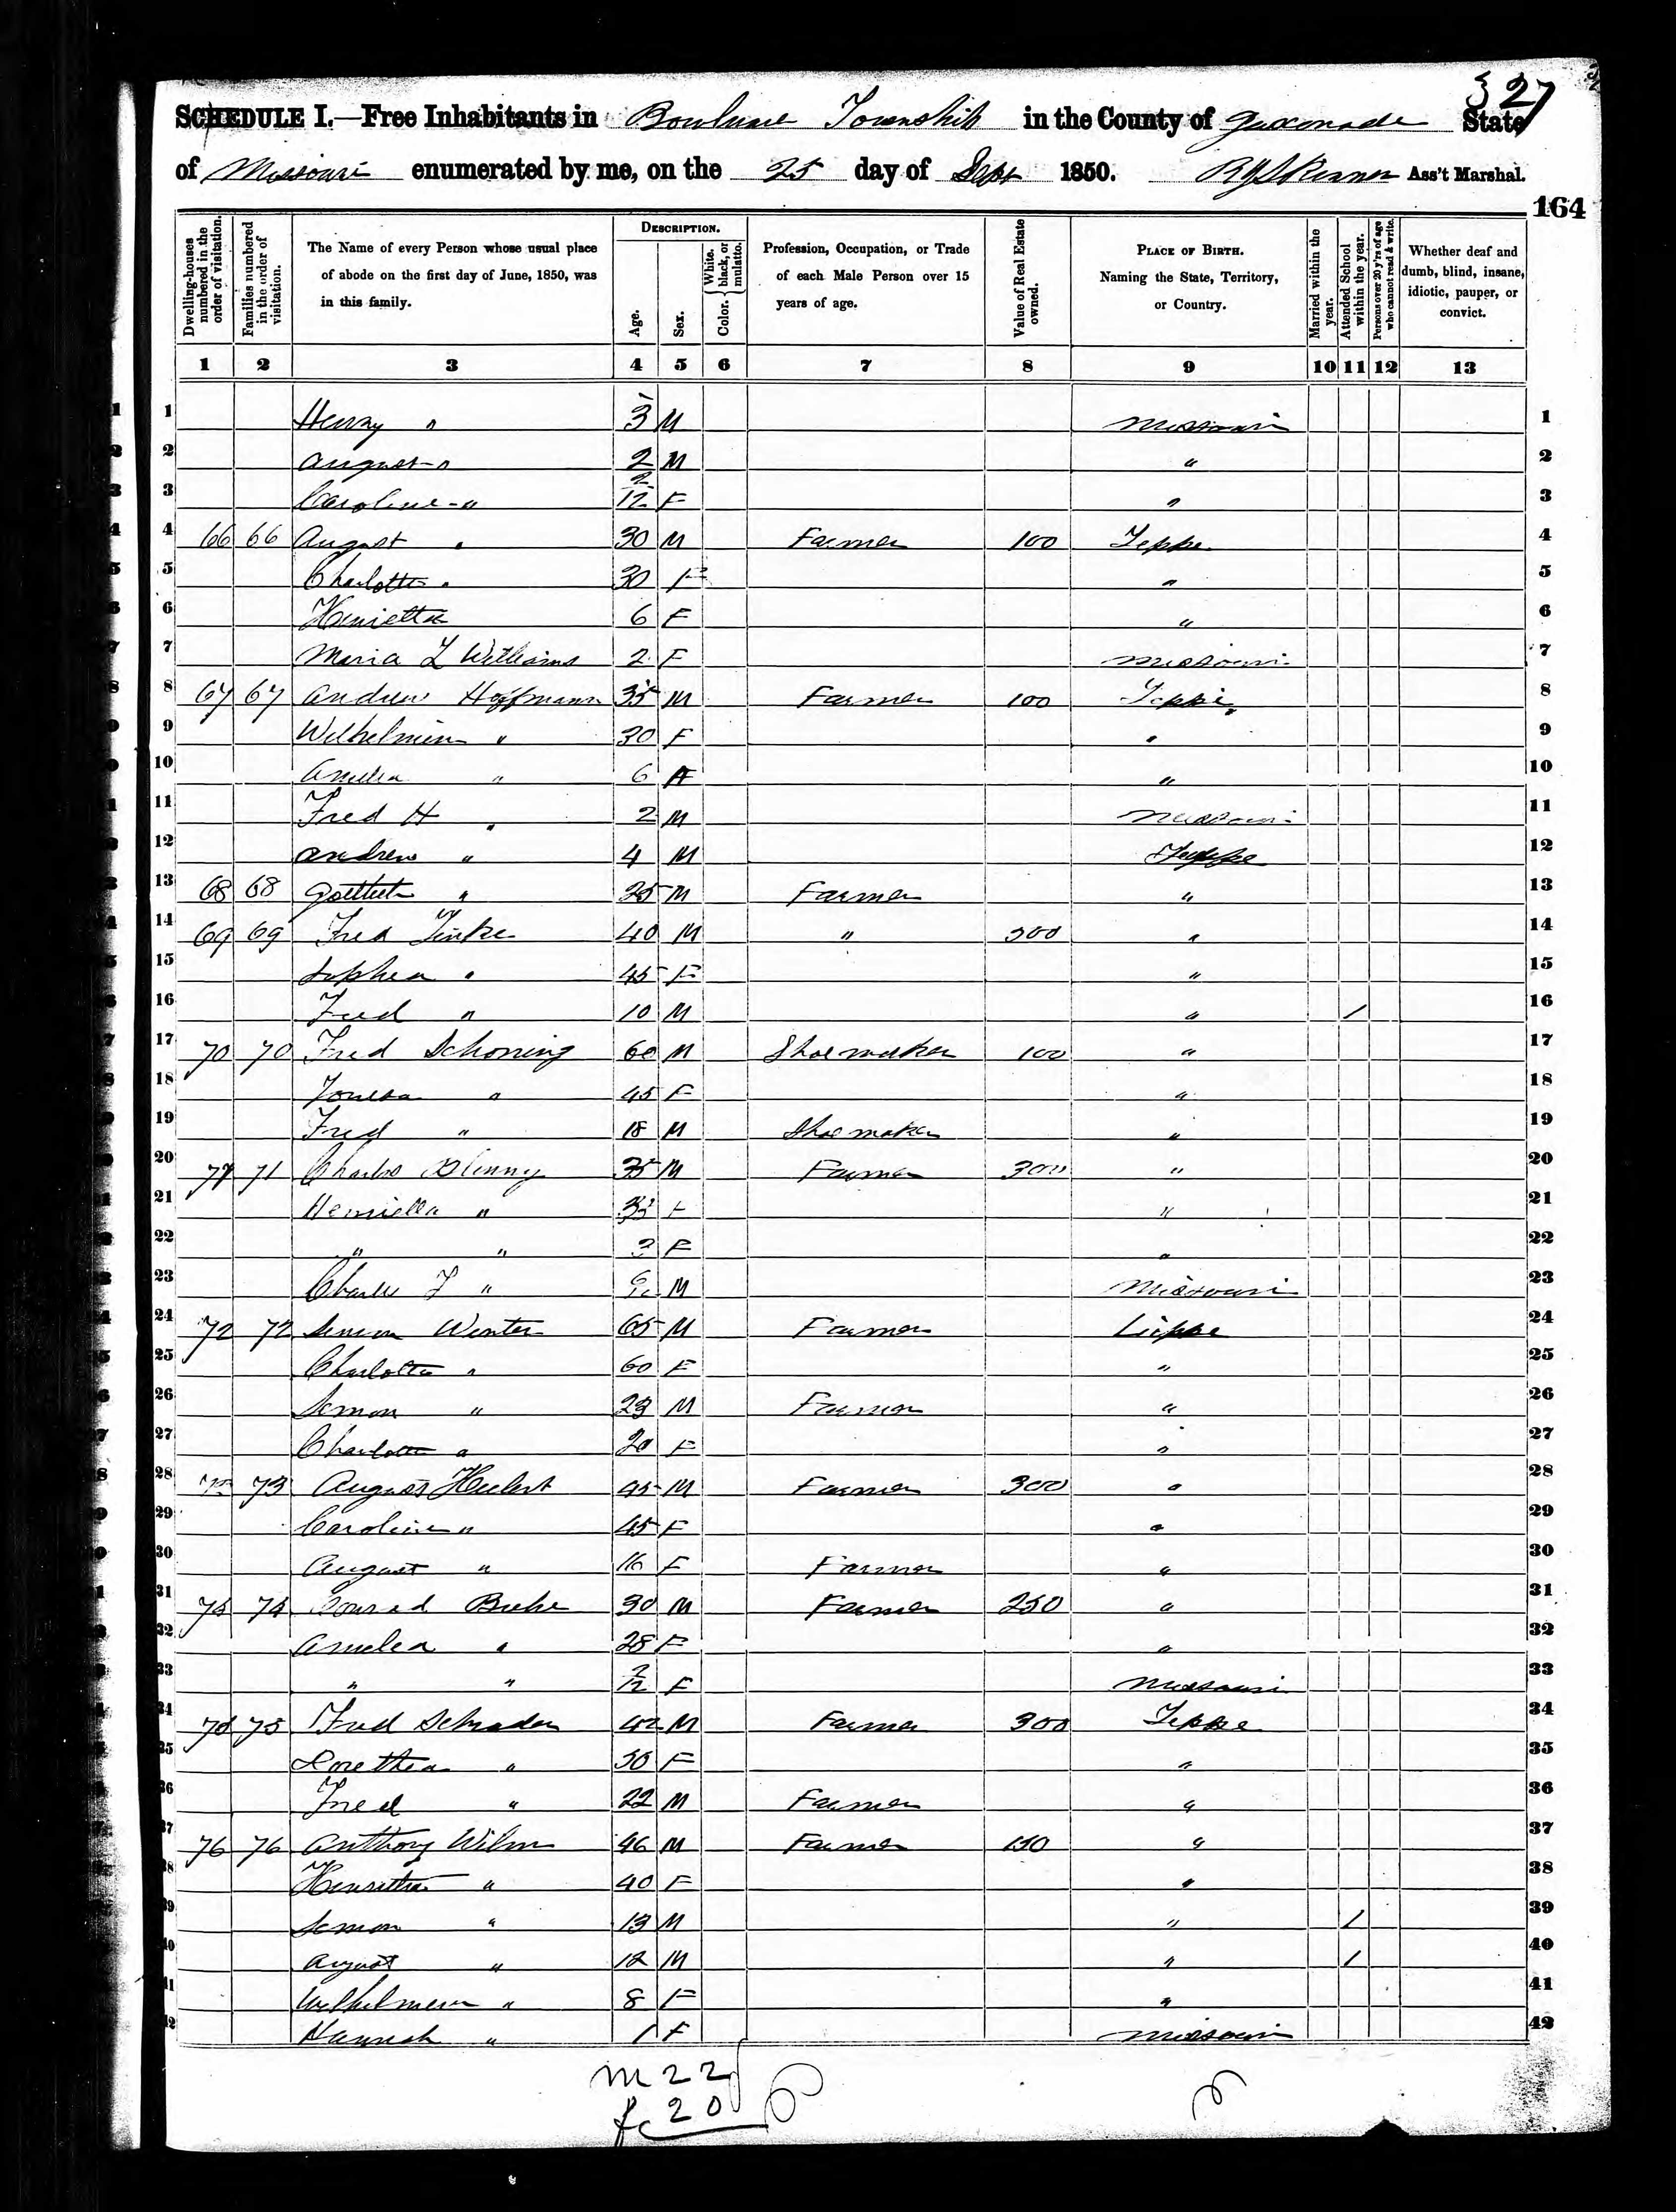 327
SCHEDULE I.—Free Inhabitants in Township in the County of Gasconade State
of Missouri enumerated by me, on the 25 day of Sept 1850. Ass't Marshal.
164
Dwelling-houses numbered in the order of visitation.
Families numbered in the order of visitation.
The Name of every Person whose usual place of abode on the first day of June, 1850, was in this family.
DESCRIPTION.
Age.
Sex.
Color. White, black, or mulatto.
Profession, Occupation, or Trade of each Male Person over 15 years of age.
Value of Real Estate owned.
PLACE OF BIRTH. Naming the State, Territory, or Country.
Married within the year.
Attended School within the year.
Persons over 20 y'rs of age who cannot read & write.
Whether deaf and dumb, blind, insane, idiotic, pauper, or convict.
1 2 3 4 5 6 7 8 9 10 11 12 13
1 Henry " 3 M Missouri 1
2 August " 2 M " 2
3 Caroline " 2/12 F " 3
4 66 66 August " 30 M Farmer 100 Leppe 4
5 Charlotte " 30 F " 5
6 Henietta 6 F " 6
7 Maria L Williams 2 F Missouri 7
8 67 67 Andrew Hoffmann 35 M Farmer 100 Leppe 8
9 Wilhelmien " 30 F " 9
10 Amelia " 6 F " 10
11 Fred H " 2 M Missouri 11
12 Andrew " 4 M 12
13 68 68 " 25 M Farmer " 13
14 69 69 Fred " 40 M " 300 " 14
15 Sophia " 45 F " 15
16 Fred " 10 M " / 16
17 70 70 Fred Schoning 60 M Shoemaker 100 " 17
18 " 45 F " 18
19 Fred " 18 M Shoemaker " 19
20 71 71 Charles 35 M Farmer 300 " 20
21 Henriella " F " 21
22 " " 3 F " 22
23 Charles F " M Missouri 23
24 72 72 Semon Winter 65 M Farmer Lippe 24
25 Charlotte " 60 F " 25
26 Semon " 23 M Farmer " 26
27 Charlotte " 20 F " 27
28 73 August 45 M Farmer 300 " 28
29 Caroline " 45 F " 29
30 August " 16 F Farmer " 30
31 74 74 Conrad 30 M Farmer 250 " 31
32 Amelia " 28 F " 32
33 " " 2/12 F Missouri 33
34 75 75 Fred Schrader 42 M Farmer 300 Leppe 34
35 Dorethea " 50 F " 35
36 Fred " 22 M Farmer " 36
37 76 76 Anthony Wilm 46 M Farmer 150 " 37
38 " 40 F " 38
39 Semon " 13 M " / 39
40 August " 12 M " / 40
41 Wilhelmien " 8 F " 41
42 Hannah " 1 F Missouri 42
m 22
f 20